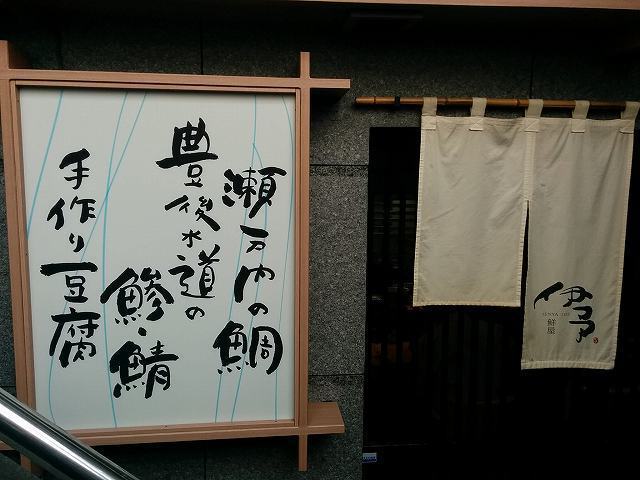 瀬戸内の鯛
豊後水道の
鯵・鯖
手作り豆腐
伊予
鮮屋